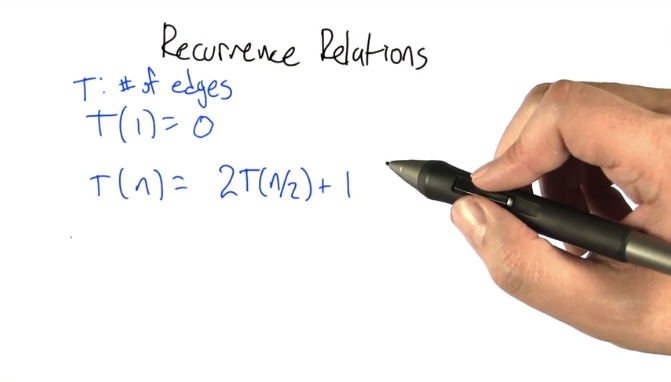 Recurrence Relations
T: # of edges
T(1) = 0
T(n) = 2T(n/2) + 1